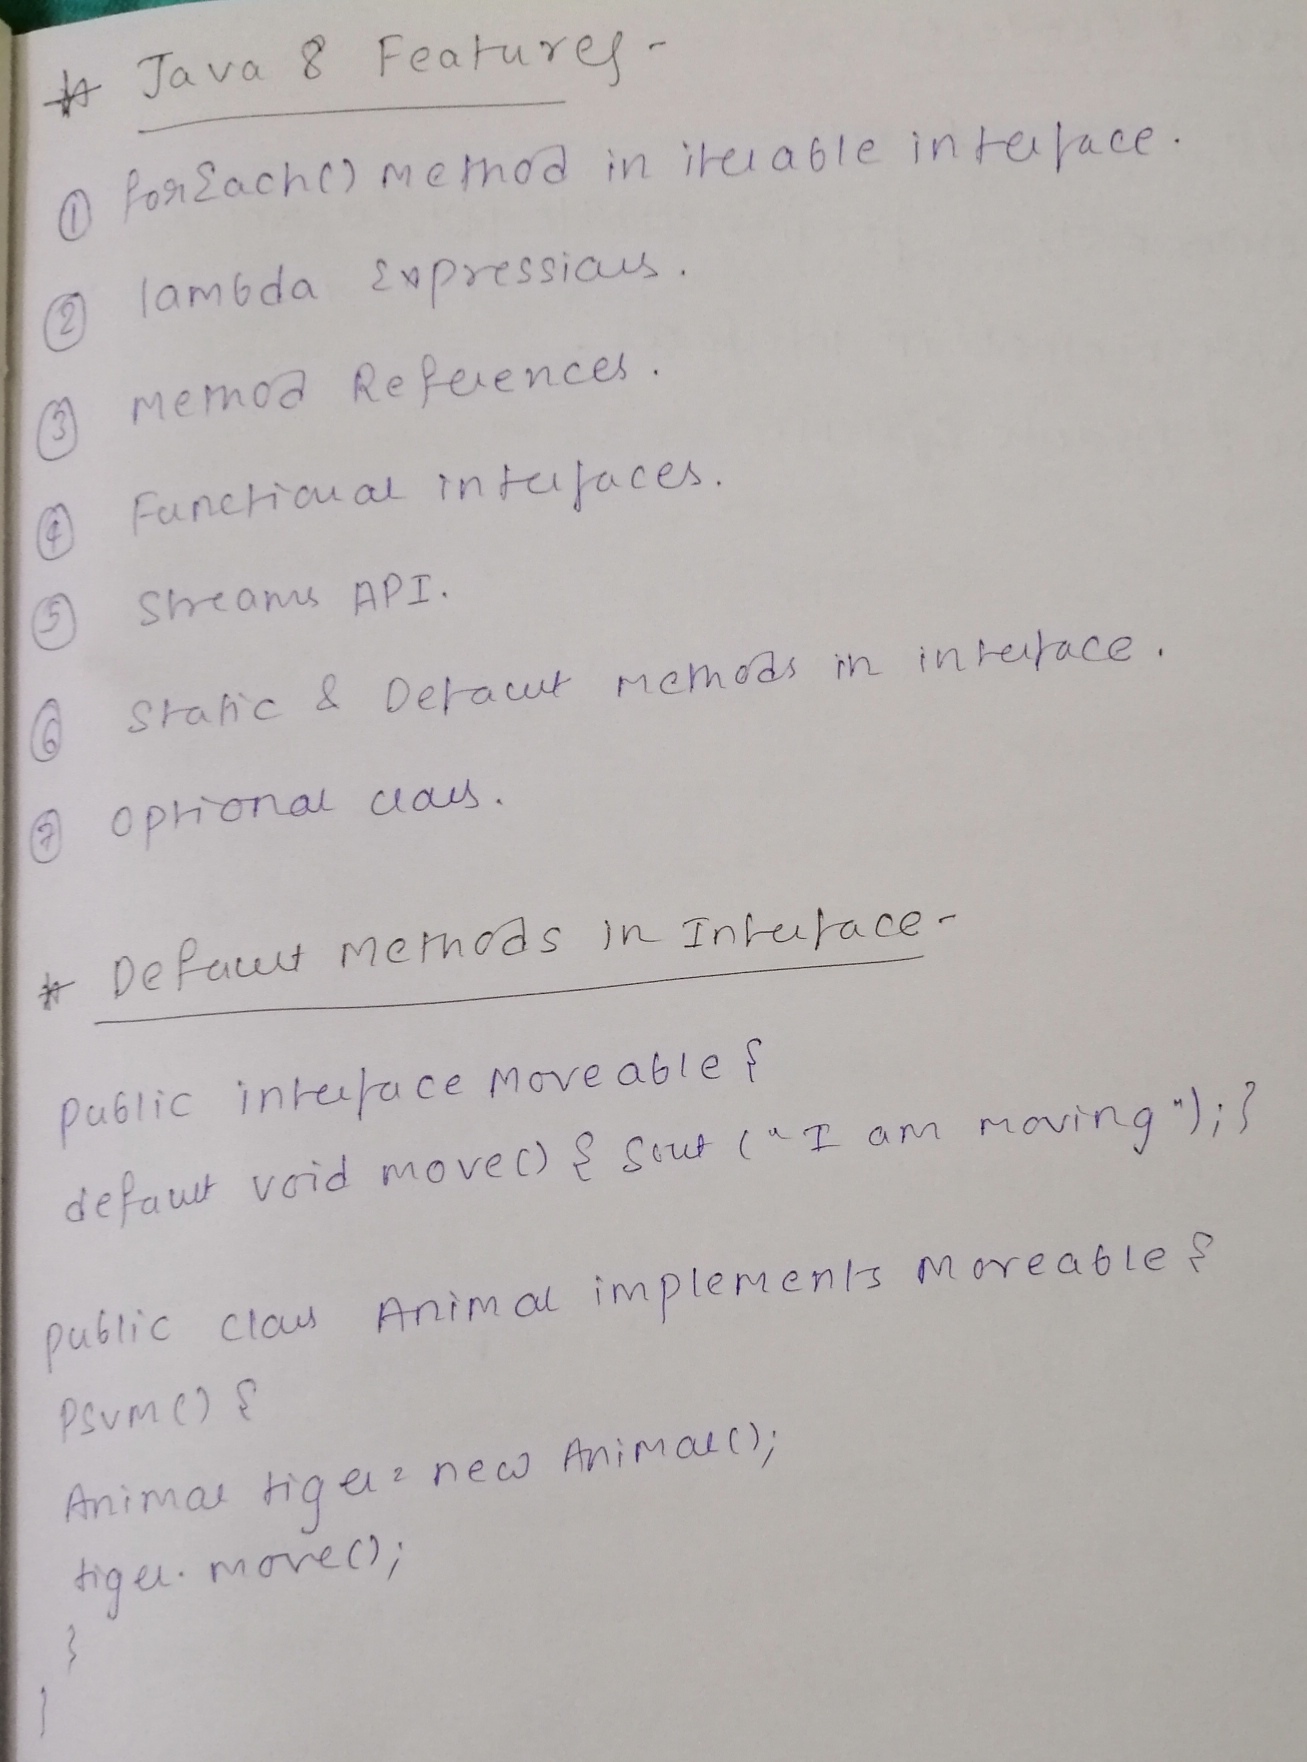 * Java 8 Features -
① forEach() method in iterable interface.
② lambda Expressions.
③ Method References.
④ Functional interfaces.
⑤ Streams API.
⑥ Static & Default methods in interface.
⑦ Optional class.
* Default Methods in Interface -
public interface Moveable {
default void move() { Sout ("I am moving"); }
public class Animal implements Moveable {
PSVM() {
Animal tiger = new Animal();
tiger. move();
}
}